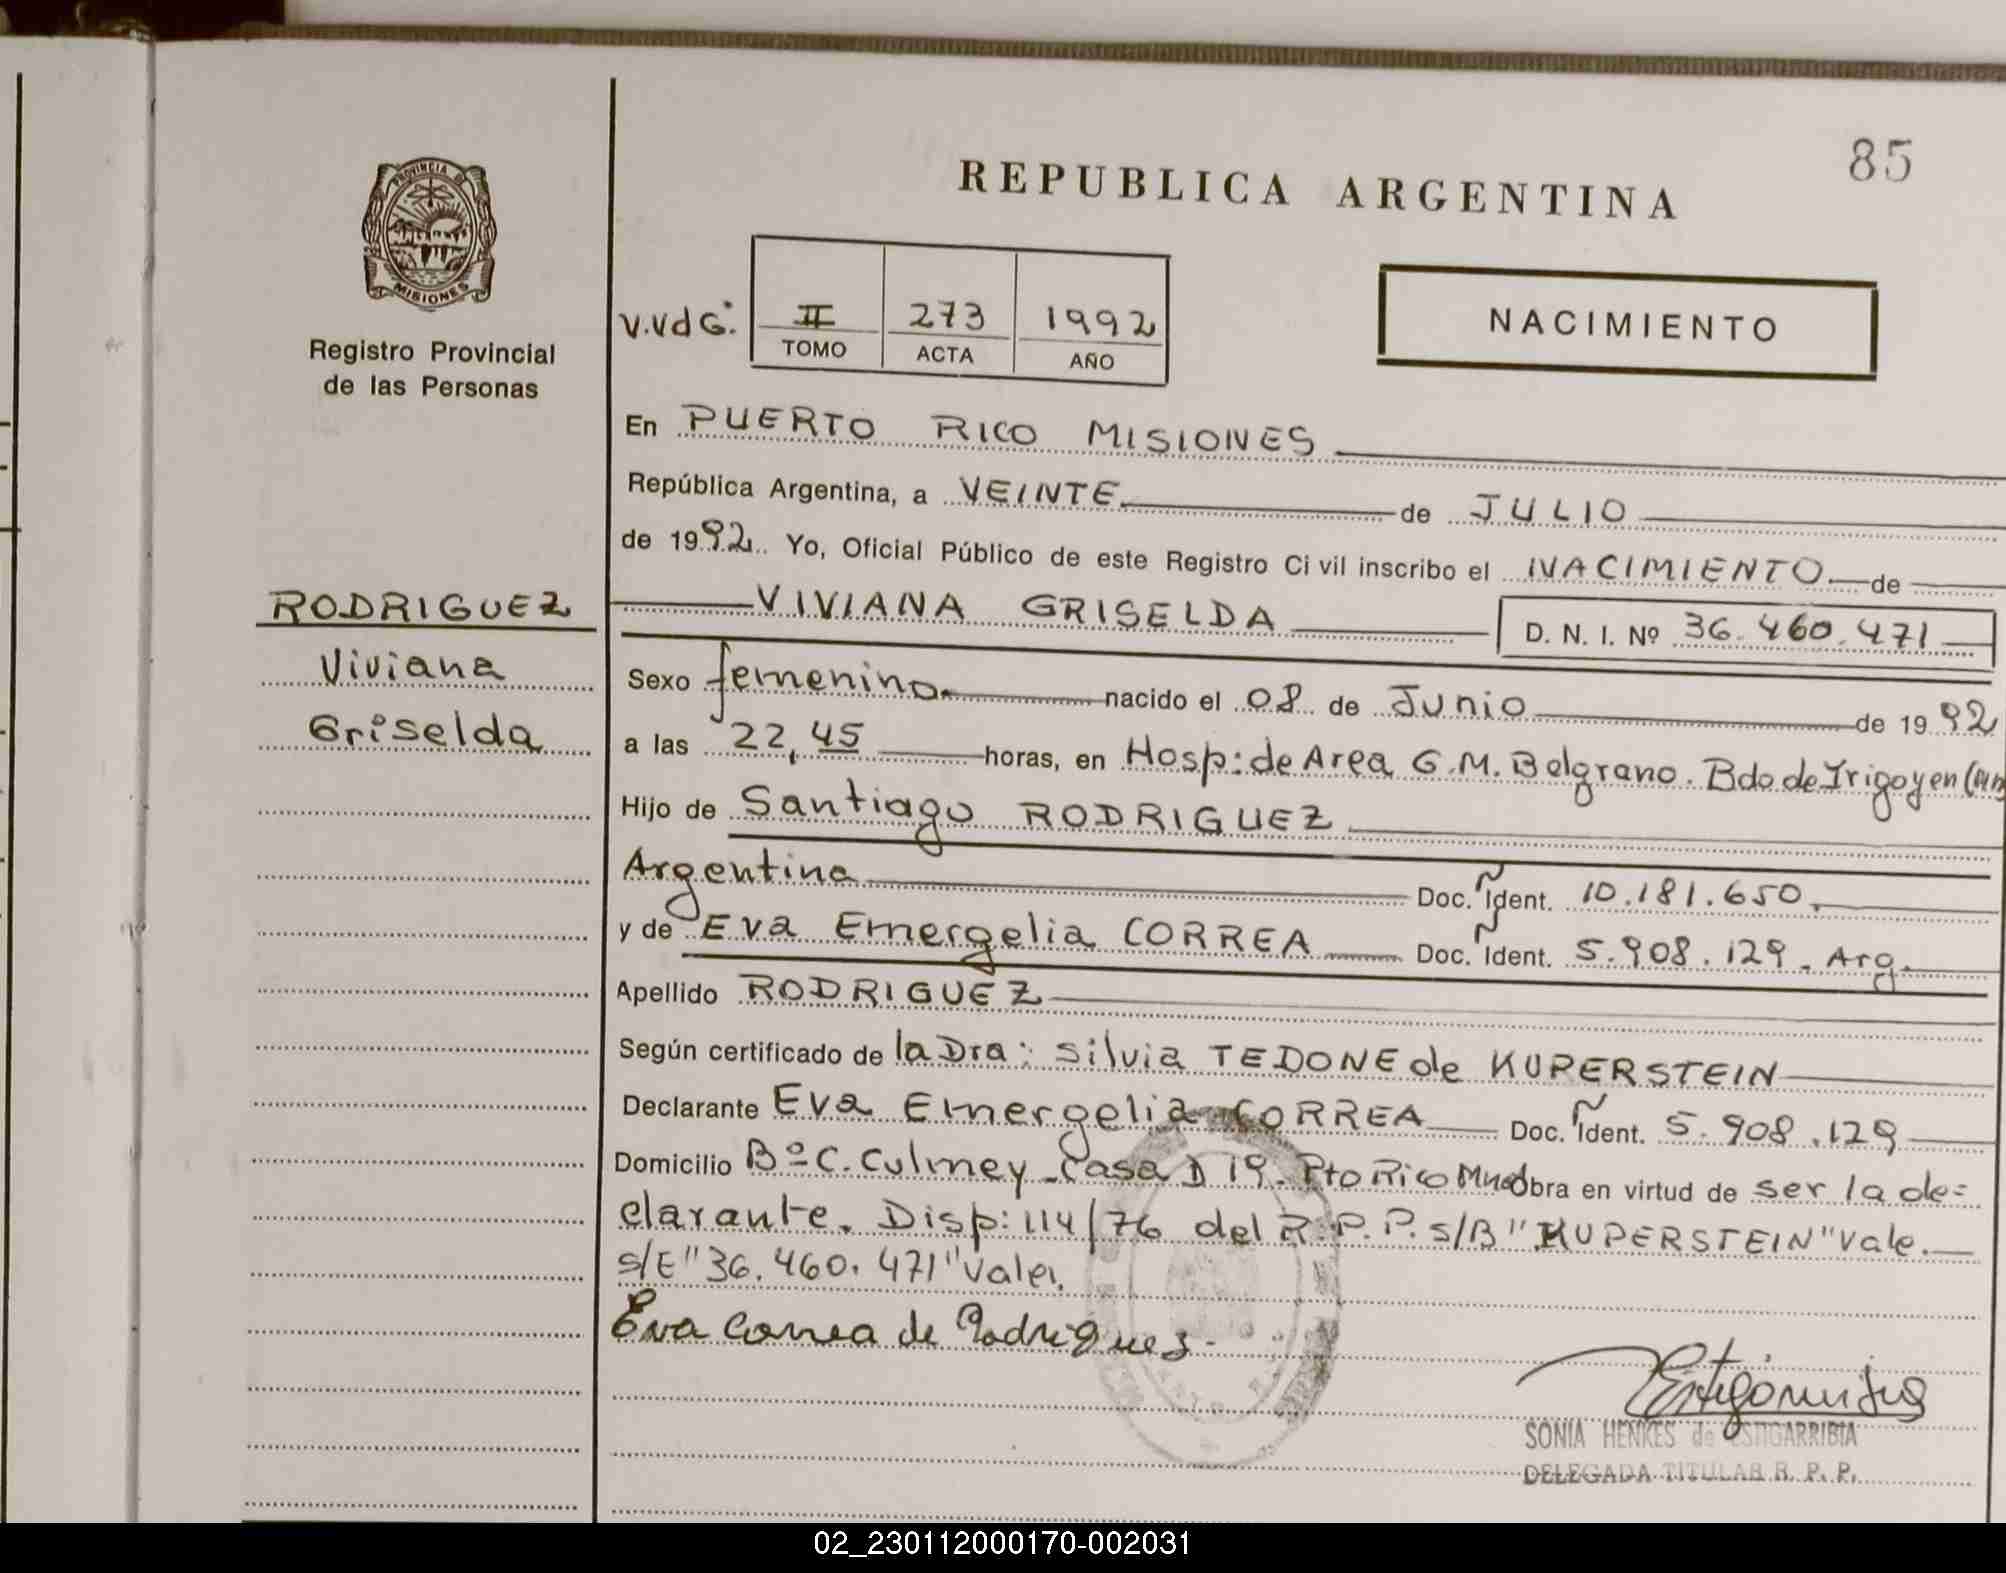 85
REPUBLICA ARGENTINA
PROVINCIA DE
MISIONES
Registro Provincial
de las Personas
V.VdG:
II 273 1992
TOMO ACTA AÑO
NACIMIENTO
En PUERTO RICO MISIONES
República Argentina, a VEINTE de JULIO
de 1992. Yo, Oficial Público de este Registro Ci vil inscribo el NACIMIENTO de
VIVIANA GRISELDA D. N. I. Nº 36.460.471
RODRIGUEZ
Viviana
Griselda
Sexo femenino. nacido el 08 de Junio de 1992
a las 22,45 horas, en Hosp: de Area G.M. Belgrano. Bdo de Irigoyen
Hijo de Santiago RODRIGUEZ
Argentina Doc. Ident. 10.181.650.
y de Eva Emergelia CORREA Doc. Ident. 5.908.129. Arg.
Apellido RODRIGUEZ
Según certificado de la Dra: Silvia TEDONE de KUPERSTEIN
Declarante Eva Emergelia CORREA Doc. Ident. 5.908.129
Domicilio Bº C. Culmey - Casa D 19. Pto Rico Mnes Obra en virtud de ser la de=
clarante. Disp: 114/76 del R.P.P. s/B "KUPERSTEIN" Vale.
s/E "36.460.471" Vale.
Eva Correa de Rodriguez.
SONIA HENKES de ESTIGARRIBIA
DELEGADA TITULAR R. P. P.
02_230112000170-002031